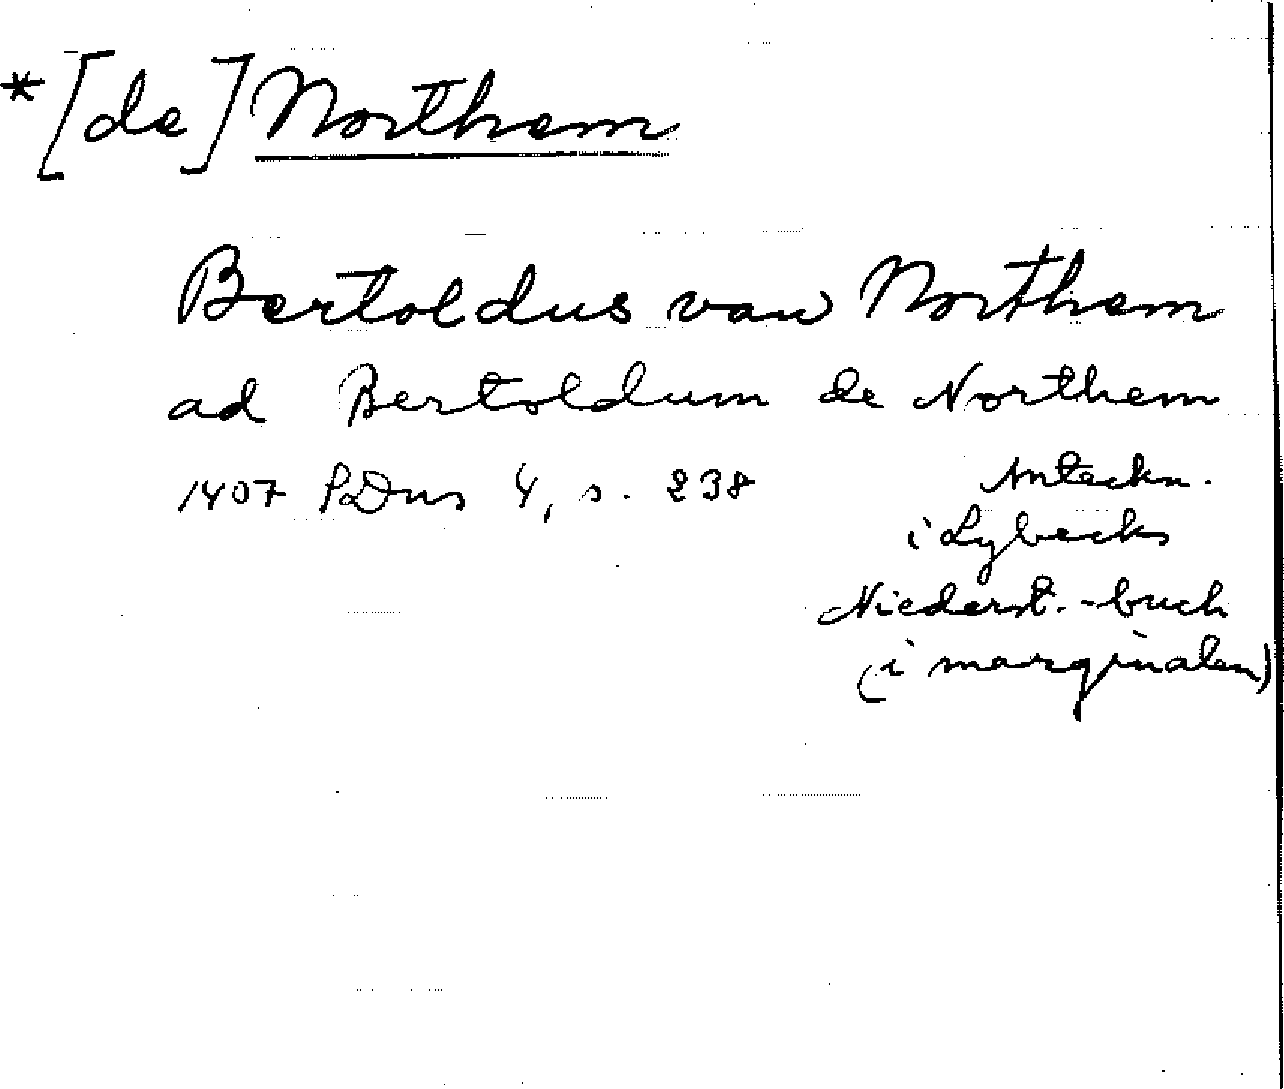 *[de] Northem
Bertoldus van Northem
ad Bertoldum de Northem
1407 PDus 4, s. 238
Anteckn.
i Lybecks
Niederst.-buch
(i marginalen)